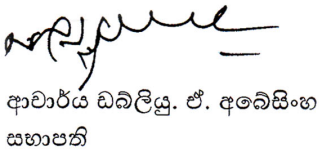 ආචාර්ය ඩබ්ලියු. ඒ. අබේසිංහ
සභාපති